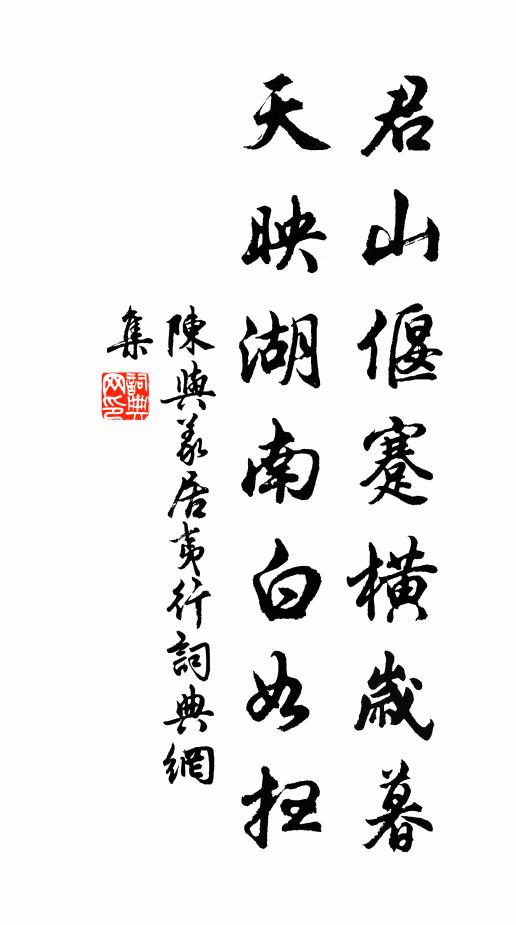 君山偃蹇橫歲暮
天映湖南白如扫
陳與義居夷行詞典網
集
詞典
网印